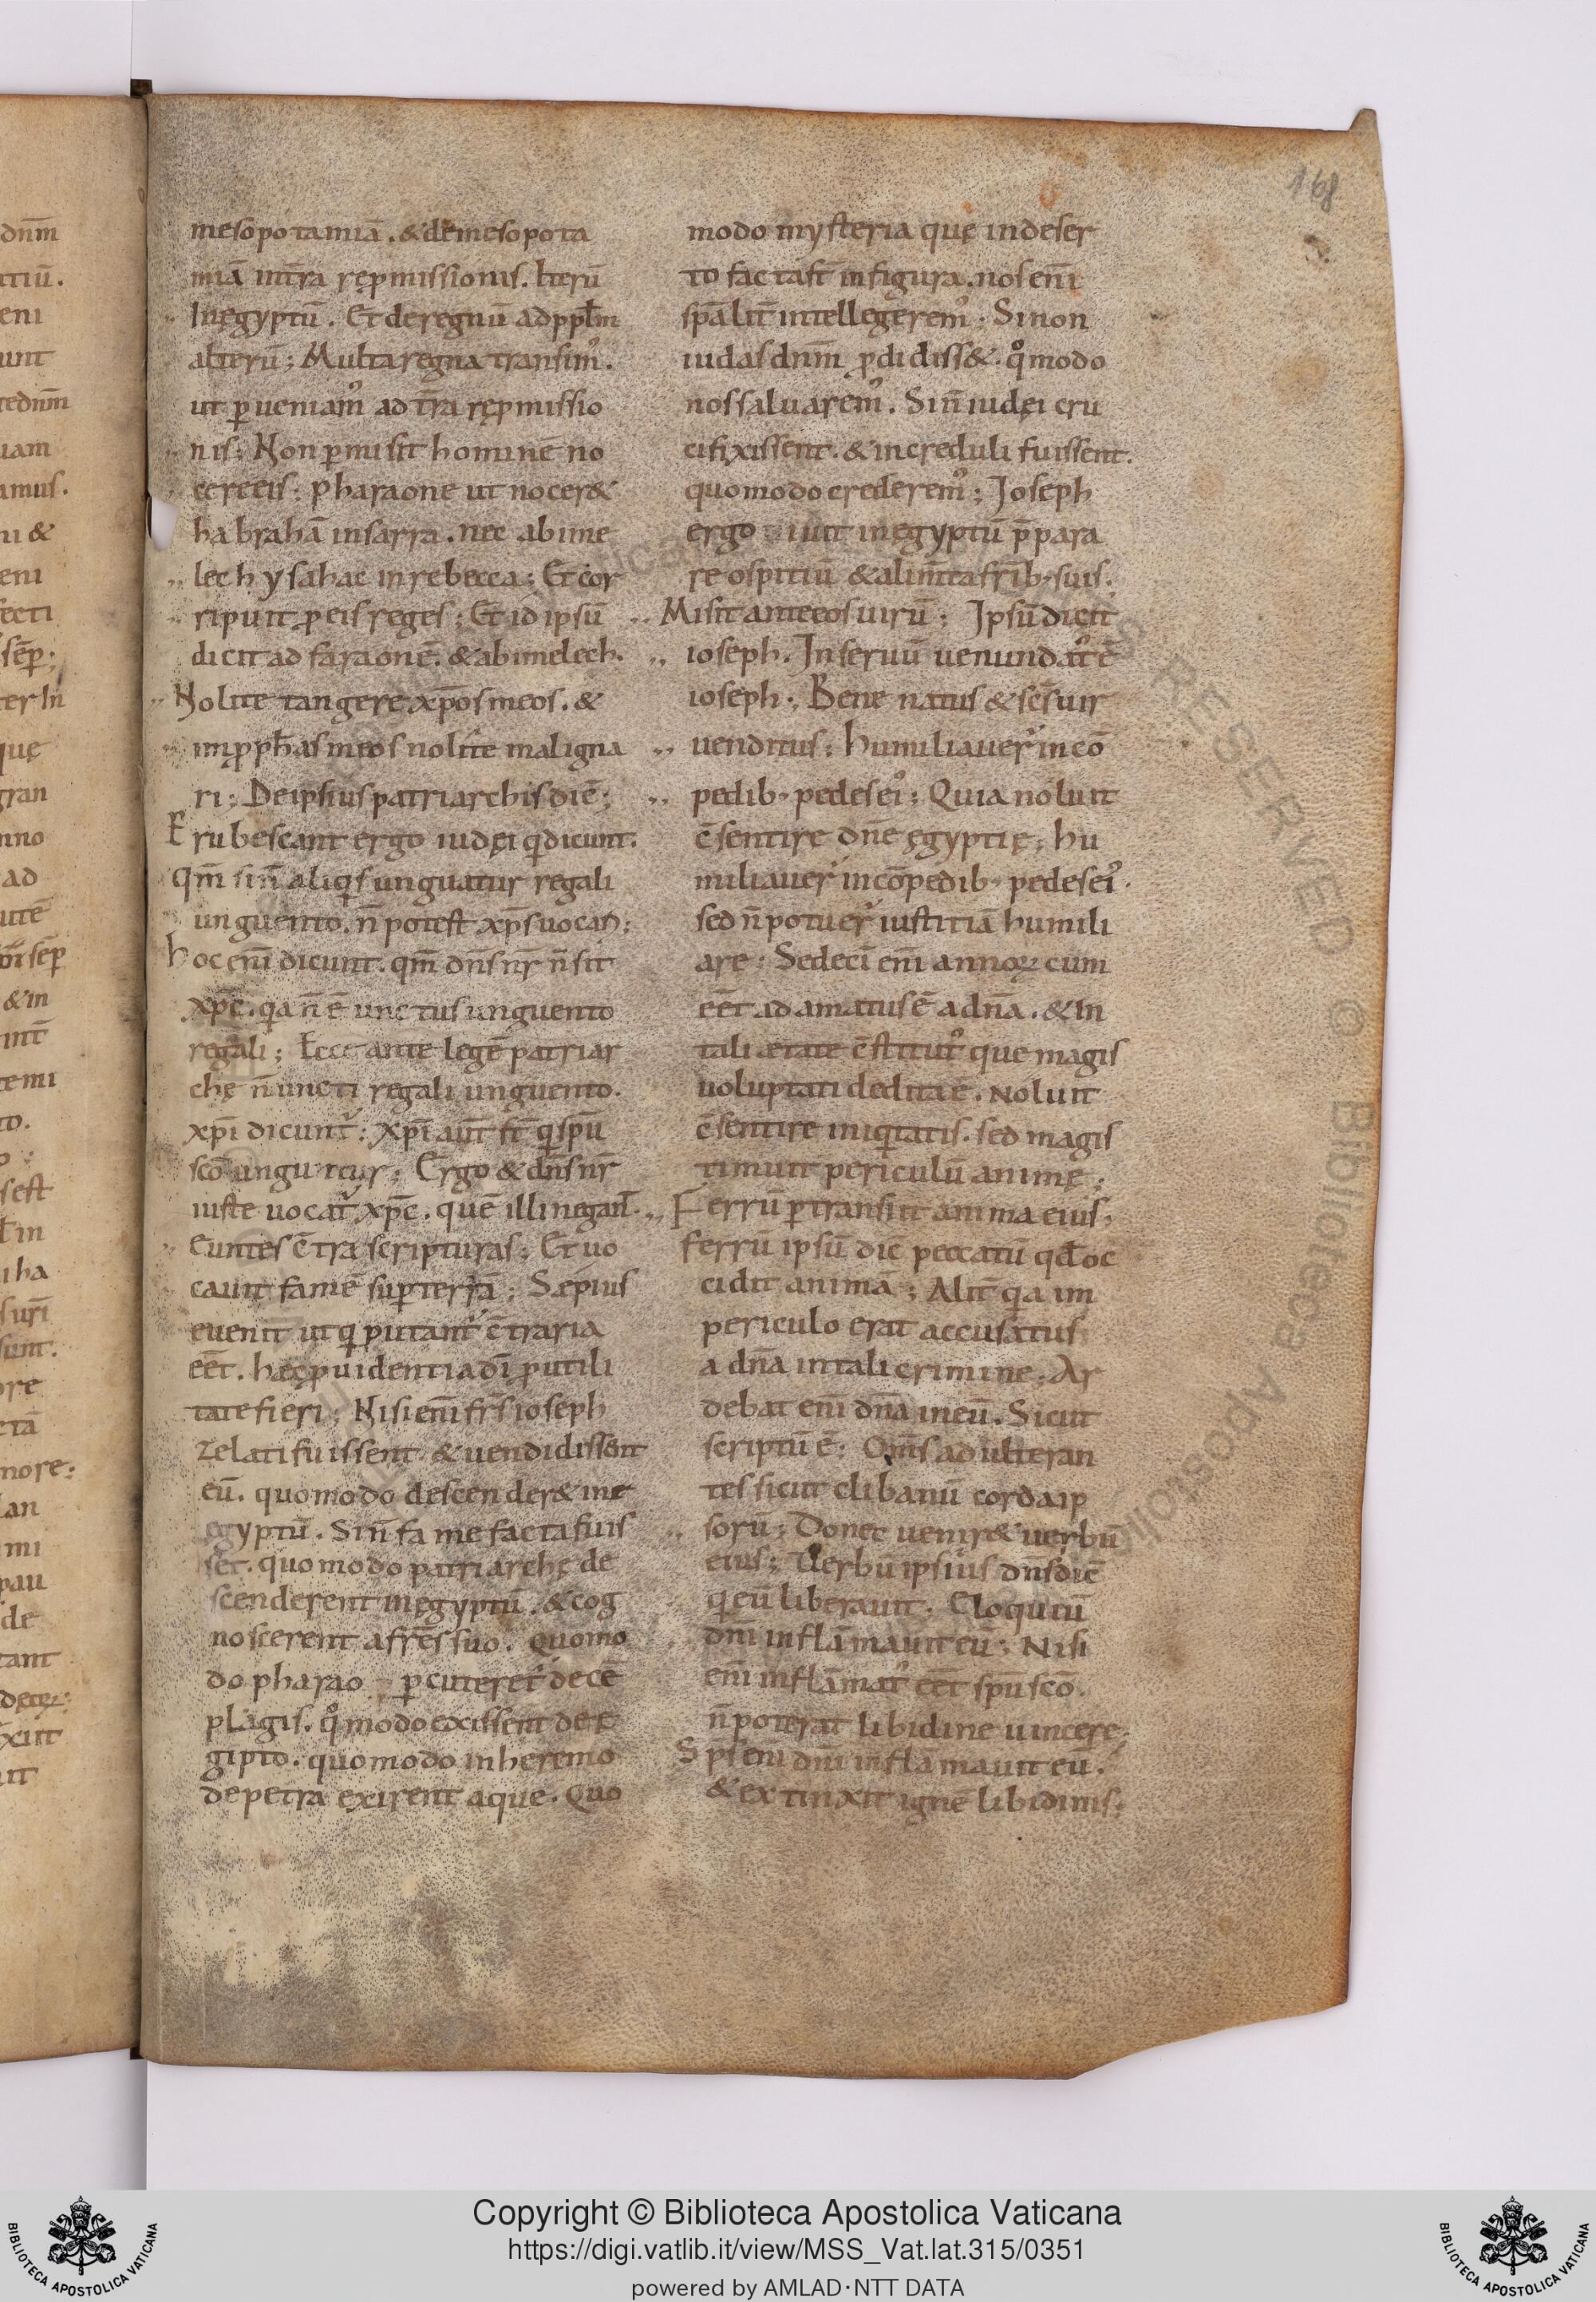 mesopotamiā. & de mesopota
miā in t̄ra rep̱missionis. Iterū
In ęgyptū. Et de regnū ad ppl̄m
alterū; Multa regna transim᾽.
ut ꝑueniam᾽ ad t̄ra rep̱missio
nis; Non ꝑmisit hominē no
cere eis; pharaone ut nocer&
habrahā in sarra. nec abime
lech ysahac in rebecca; Et cor
ripuit ꝓ eis reges; Et id ipsū
dicit ad faraonē. & abimelech.
Nolite tangere xp̄os meos. &
in ꝓph̄as meos nolite maligna
ri; De ipsius patriarchis diē;
Erubescant ergo iudęi q̇ dicunt.
Qm̄ si n̄ aliq̇s unguatur regali
unguento. n̄ potest xp̄s uocari;
hoc eni᷑ dicunt. qm̄ dn̄s nr̄ n̄ sit
xp̄c. q̇a n̄ ē unctus unguento
regali; Ecce ante legē patriar
chę n̄ uncti regali unguento.
xp̄i dicunt᷑; Xp̄i aut̄ st̄ q̇ sp̄u
sc̄o unguntur; Ergo & dn̄s nr̄
iuste uocat᷑ xp̄c. quē illi negant.
Euntes c̄tra scripturas; Et uo
cauit famē suꝑ terrā; Sępius
euenit ut q̇ putant᷑ c̄traria
eēt. hęc ꝓuidentia dī ꝓ utili
tate fieri; Nisi eni᷑ fr̄s ioseph
zelati fuissent. & uendidissent
eū. quomodo descender& in e
egyptū. Si n̄ fame facta fuis
set. quomodo patriarchę de
scenderent in ęgyptū. & cog
noscerent a fr̄es suo. Quomo
do pharao ꝑcuteret᷑ decē
plagis. qo᷒modo exissent de ę
gipto. quomodo in heremo
de petra exirent aque. Quo
modo mysteria quę in deser
to facta st̄ in figura. nos eni᷑
sp̄alit̄ intellegerem᾽. Si non
iudas dnm̄ ꝓdidiss&. qo᷒modo
nos saluarem᾽. Si n̄ iudęi cru
cifixissent. & increduli fuissent.
quomodo crederem᾽; Ioseph
ergo iuit in ęgyptū p̄para
re ospitiū & alim̄ta fr̄ib; suis.
Misit ante eos uirū; Ipsū dicit
ioseph. In seruū uenundat᾽ ē
ioseph; Bene natus & sc̄s uir
uenditus; humiliauer᷑ in cō
pedib; pedes ei᾽; Quia noluit
c̄sentire dn̄e ęgyptię; hu
miliauer᷑ in cōpedib; pedes ei᾽.
sed n̄ potuer᷑ iustitiā humili
are; Sedeci᷑ eni᷑ annoꝝ cum
eēt adamatus ē a dn̄a. & In
tali ætate c̄stitut᾽ que magis
uoluptati dedita ē. Noluit
c̄sentire iniq̇tatis. sed magis
timuit periculū animę;
Ferrū ꝑtransiit anima eius;
ferrū ipsū dic̄ peccatū qd̄ oc
cidit animā; Alit̄ q̇a im
periculo erat accusatus
a dn̄a in tali crimine; Ar
debat eni᷑ dn̄a in eū. Sicut
scriptū ē; Om̄s adulteran
tes sicut clibanū corda ip
sorū; Donec uenir& uerbū
eius; Uerbū ipsius dn̄s diē
q̇ eū liberauit. Eloquiū
dnī inflāmauit eū; Nisi
eni᷑ inflāmat᾽ eēt sp̄u sc̄o.
n̄ poterat libidine uincere;
Sp̄s eni᷑ dnī inflamauit eū.
& extinxit ignē libidinis;
168
Copyright © Biblioteca Apostolica Vaticana
https://digi.vatlib.it/view/MSS_Vat.lat.315/0351
powered by AMLAD·NTT DATA